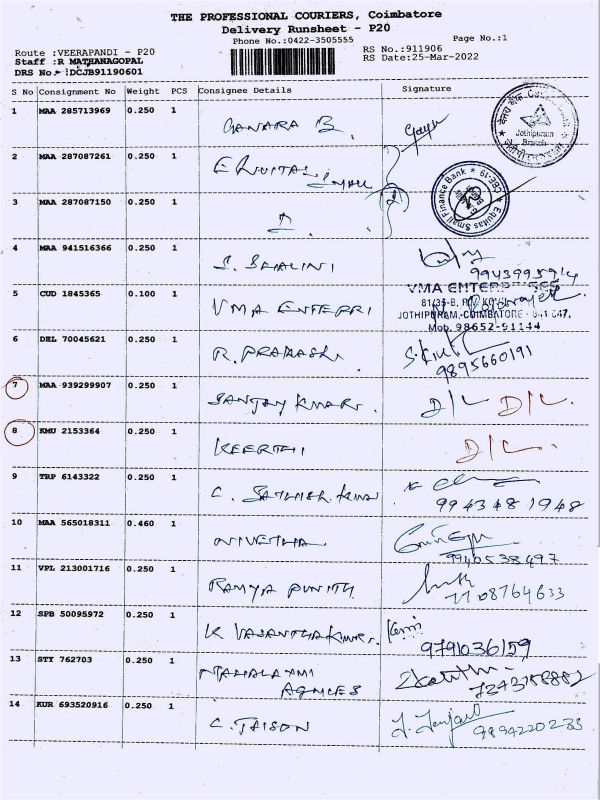 THE PROFESSIONAL COURIERS, Coimbatore
Delivery Runsheet - P20
Phone No.:0422-3505555
Page No.:1
Route :VEERAPANDI - P20
Staff :R MATHANAGOPAL
DRS No.- !DCJB91190601
RS No.:911906
RS Date:25-Mar-2022
S No Consignment No Weight PCS Consignee Details Signature
1 MAA 285713969 0.250 1 CANARA B
Jothipuram
Branch
2 MAA 287087261 0.250 1
3 MAA 287087150 0.250 1
Equitas Small Finance Bank * CBE-19 *
4 MAA 941516366 0.250 1 S. SHALINI
5 CUD 1845365 0.100 1 VMA ENTERPRI
VMA ENTERPRISES
JOTHIPURAM, COIMBATORE - 641 047.
Mob. 98652-91144
6 DEL 70045621 0.250 1 R. PRAKASH
9895660191
7 MAA 939299907 0.250 1 SANJAY KUMAR. D/L D/L.
8 KMU 2153364 0.250 1 KEERTHI D/L.
9 TRP 6143322 0.250 1 C. SATHISH KUMAR
9943481948
10 MAA 565018311 0.460 1 NIVETHA
9940538497
11 VPL 213001716 0.250 1 RAMYA PUNITH
7708764633
12 SPB 50095972 0.250 1 K VASANTHAKUMAR.
9791036159
13 STY 762703 0.250 1 MAHALAXMI
AGNCES
14 KUR 693520916 0.250 1 C. JAISON
9894220233